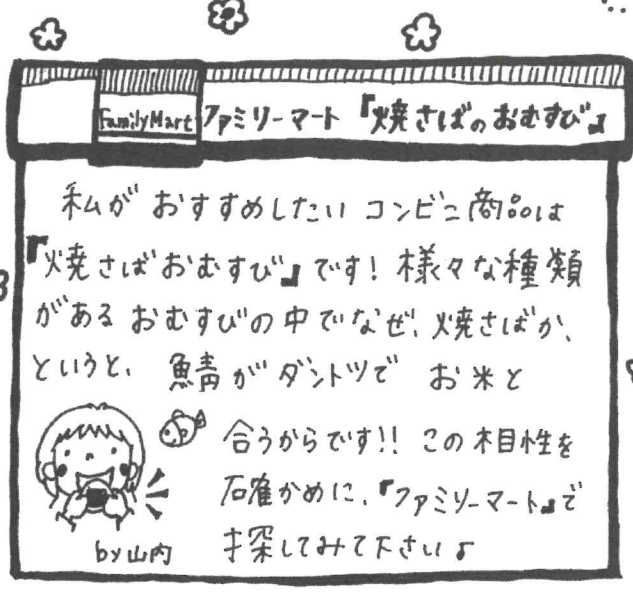 FamilyMart ファミリーマート『焼さばのおむすび』
私がおすすめしたいコンビニ商品は
『焼さばおむすび』です！様々な種類
があるおむすびの中でなぜ、焼さばか、
というと、鯖がダントツでお米と
合うからです!!この相性を
確かめに、『ファミリーマート』で
探してみて下さい♪
by山内